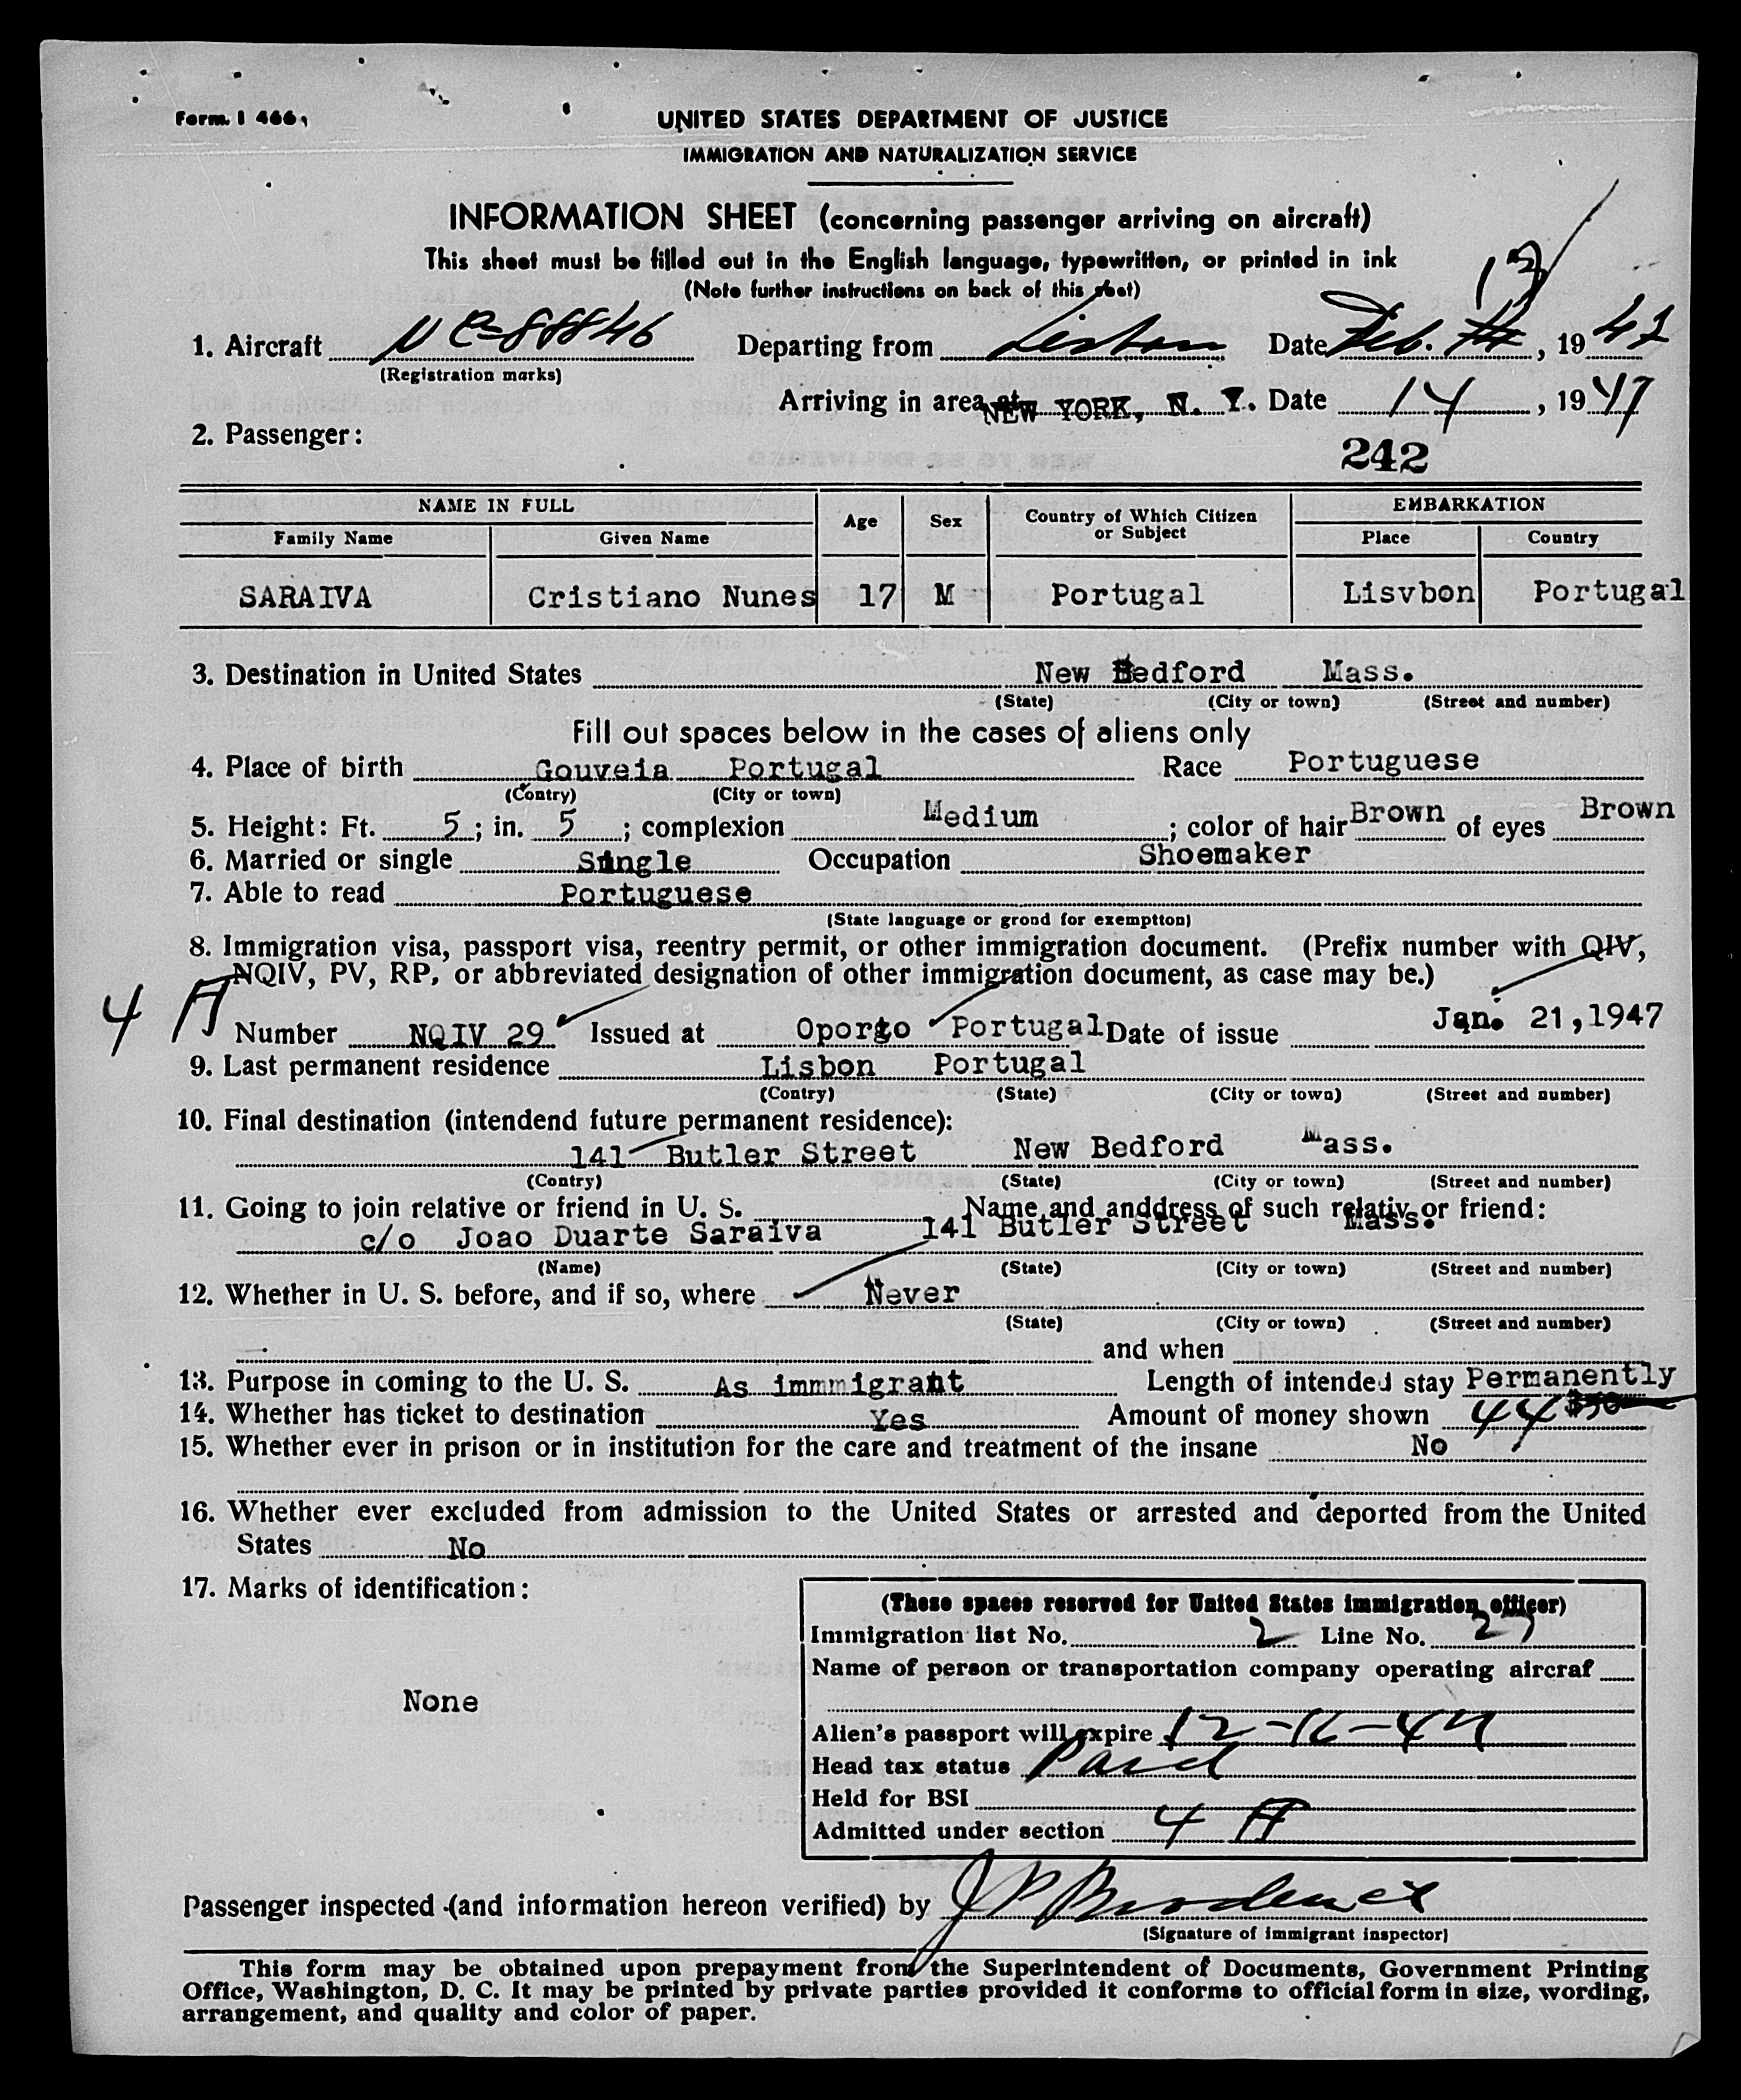 Form. I 466
UNITED STATES DEPARTMENT OF JUSTICE
IMMIGRATION AND NATURALIZATION SERVICE
INFORMATION SHEET (concerning passenger arriving on aircraft)
This sheet must be filled out in the English language, typewritten, or printed in ink
(Note further instructions on back of this sheet)
13
1. Aircraft NC-88846 Departing from Lisbon Date Feb. , 1947
(Registration marks)
Arriving in area at NEW YORK, N. Y. Date 14, 1947
2. Passenger:
242
NAME IN FULL Age Sex Country of Which Citizen or Subject EMBARKATION
Family Name Given Name Place Country
SARAIVA Cristiano Nunes 17 M Portugal Lisvbon Portugal
3. Destination in United States New Bedford Mass.
(State) (City or town) (Street and number)
Fill out spaces below in the cases of aliens only
4. Place of birth Gouveia Portugal Race Portuguese
(Contry) (City or town)
5. Height: Ft. 5; in. 5; complexion Medium; color of hair Brown of eyes Brown
6. Married or single Single Occupation Shoemaker
7. Able to read Portuguese
(State language or grond for exemptton)
8. Immigration visa, passport visa, reentry permit, or other immigration document. (Prefix number with QIV,
NQIV, PV, RP, or abbreviated designation of other immigration document, as case may be.)
4 A Number NQIV 29 Issued at Oporto Portugal Date of issue Jan. 21,1947
9. Last permanent residence Lisbon Portugal
(Contry) (State) (City or town) (Street and number)
10. Final destination (intendend future permanent residence):
141 Butler Street New Bedford Mass.
(Contry) (State) (City or town) (Street and number)
11. Going to join relative or friend in U. S. Name and anddress of such relativ or friend:
c/o Joao Duarte Saraiva 141 Butler Street Mass.
(Name) (State) (City or town) (Street and number)
12. Whether in U. S. before, and if so, where Never
(State) (City or town) (Street and number)
and when
13. Purpose in coming to the U. S. As immmigrant Length of intended stay Permanently
14. Whether has ticket to destination Yes Amount of money shown 44 $50
15. Whether ever in prison or in institution for the care and treatment of the insane No
16. Whether ever excluded from admission to the United States or arrested and deported from the United
States No
17. Marks of identification:
None
(These spaces reserved for United States immigration officer)
Immigration list No. 2 Line No. 27
Name of person or transportation company operating aircraf
Alien's passport will expire 12-16-47
Head tax status Paid
Held for BSI
Admitted under section 4 A
Passenger inspected (and information hereon verified) by
(Signature of immigrant inspector)
This form may be obtained upon prepayment from the Superintendent of Documents, Government Printing
Office, Washington, D. C. It may be printed by private parties provided it conforms to official form in size, wording,
arrangement, and quality and color of paper.